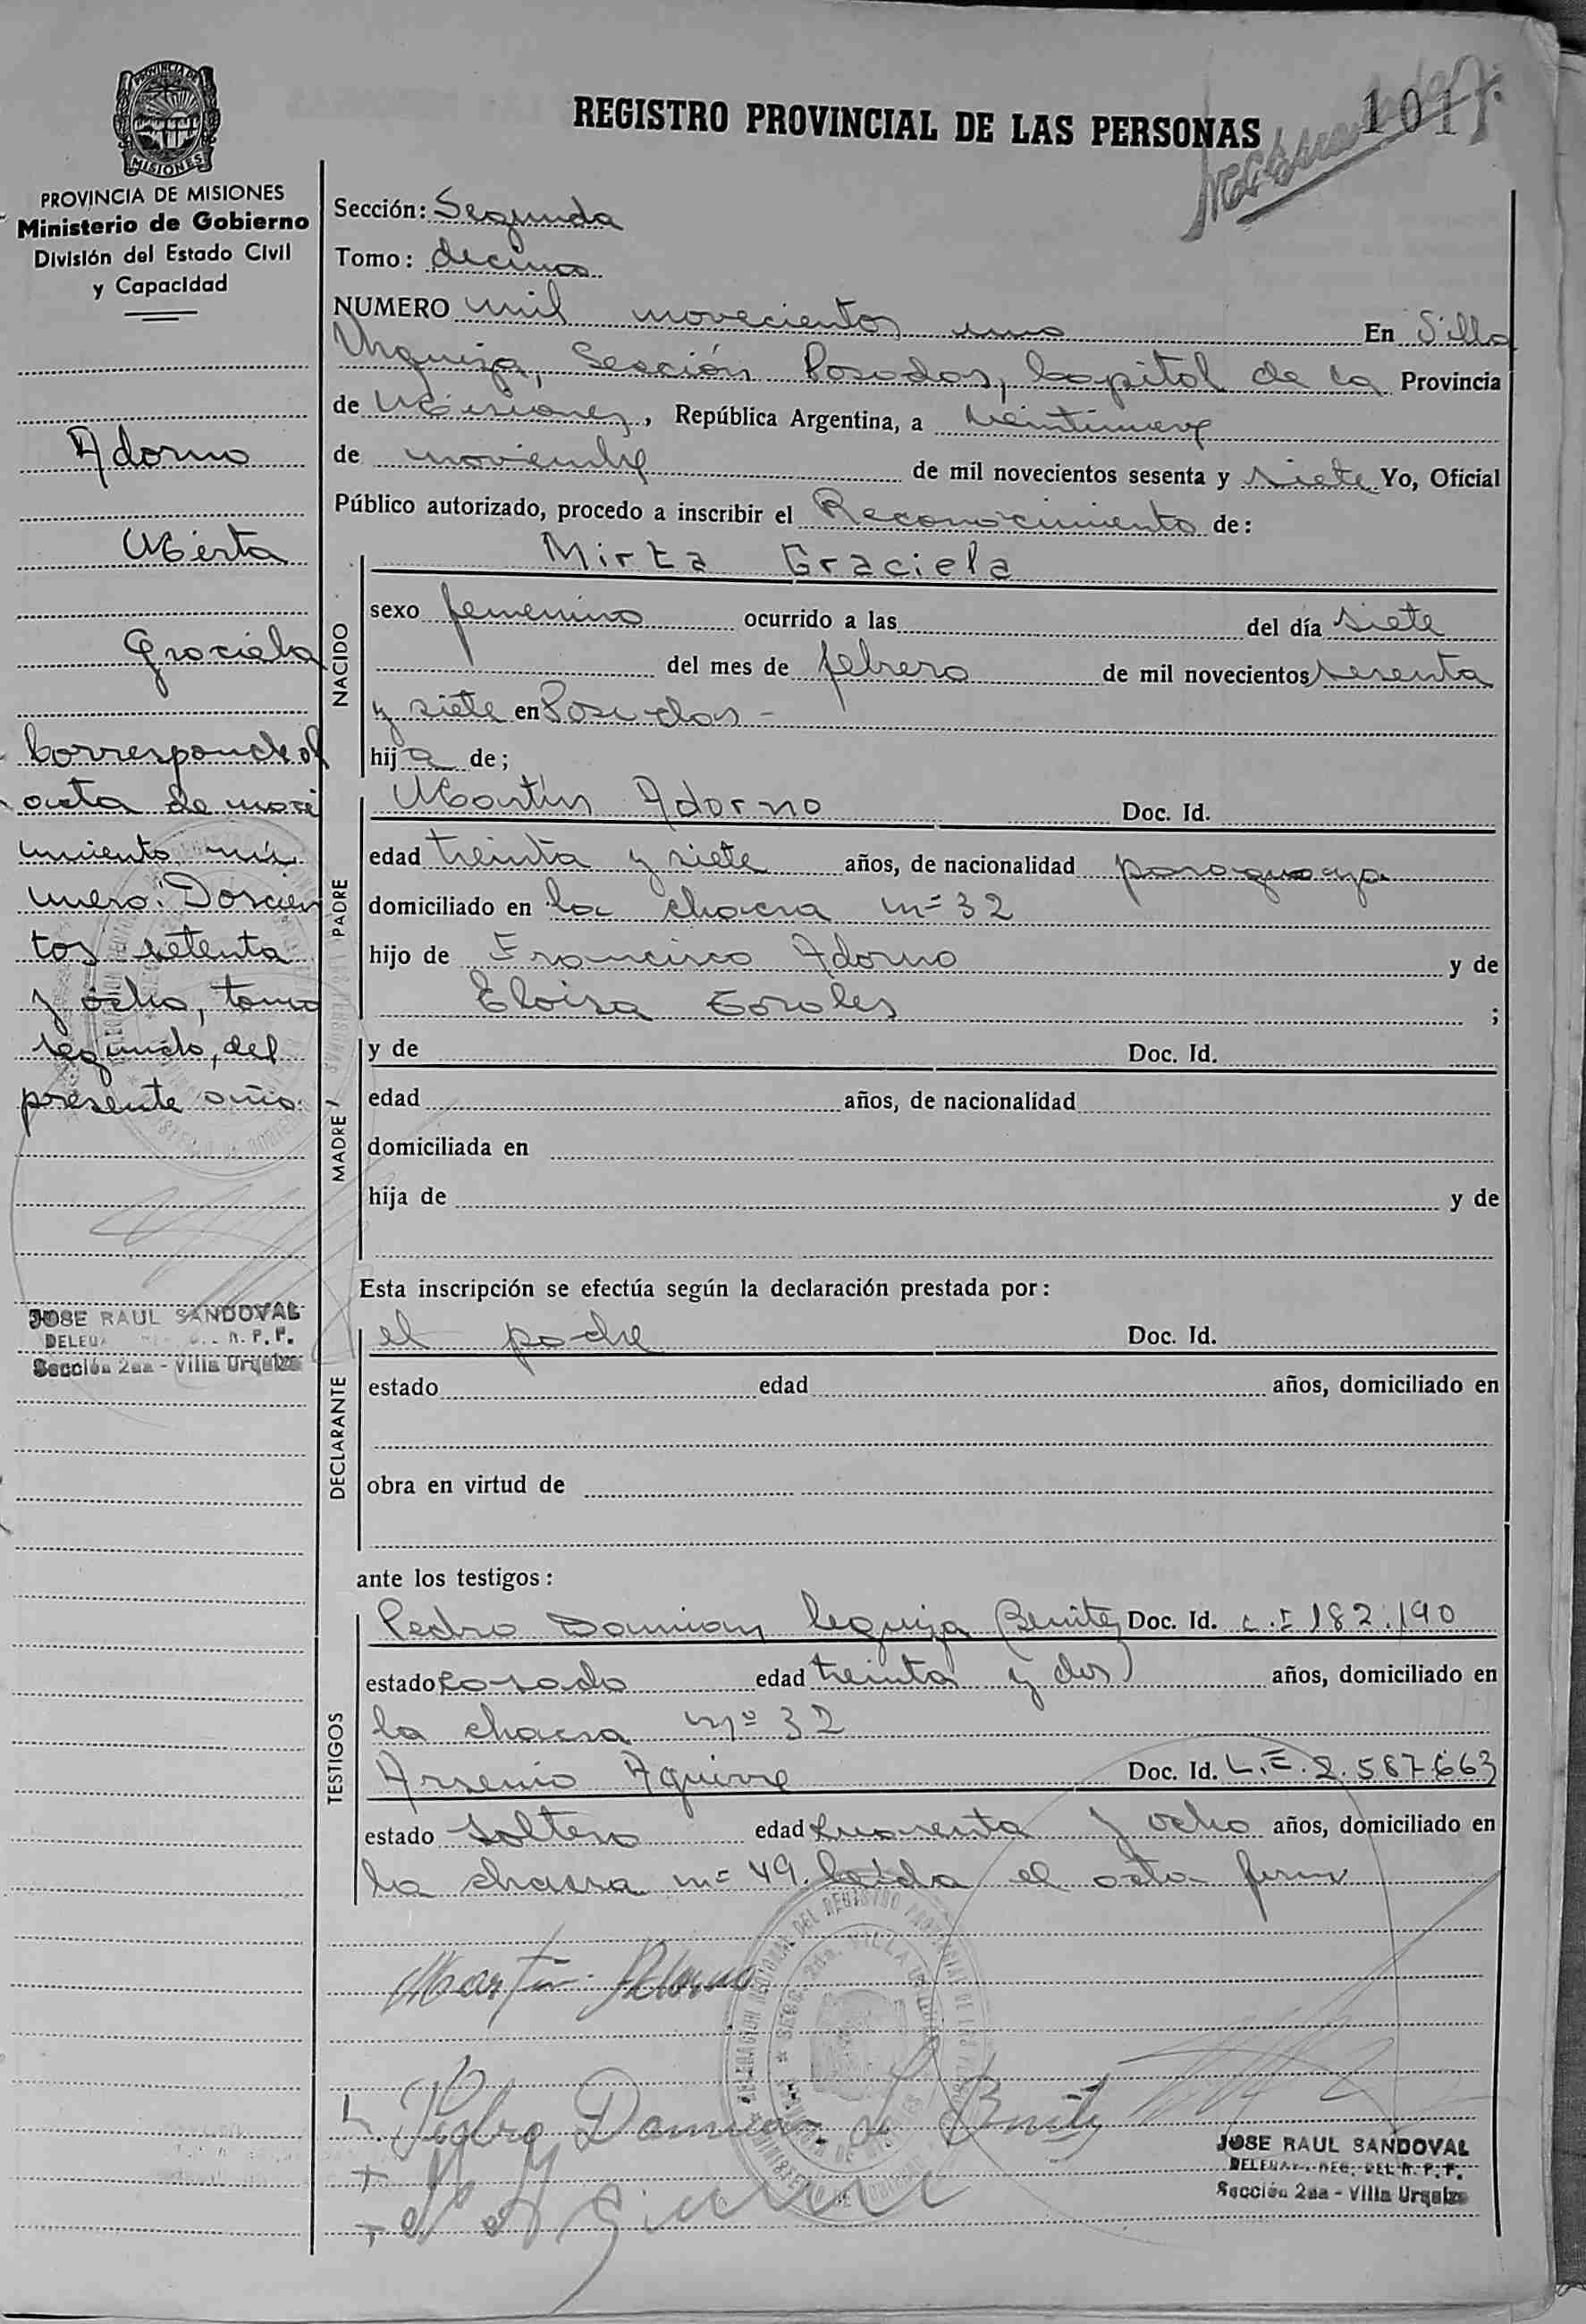 PROVINCIA DE
MISIONES
PROVINCIA DE MISIONES
Ministerio de Gobierno
División del Estado Civil
y Capacidad
REGISTRO PROVINCIAL DE LAS PERSONAS
101
Sección: Segunda
Tomo: decimo
NUMERO mil novecientos uno En Villa
Urquiza, Sección Posadas, Capital de la Provincia
de Misiones, República Argentina, a veintinueve
de noviembre de mil novecientos sesenta y siete Yo, Oficial
Público autorizado, procedo a inscribir el Reconocimiento de:
Adorno
Mirta
Graciela
Corresponde al
acta de naci
miento nú
mero: Doscien
tos setenta
y ocho, tomo
segundo, del
presente año.
JOSE RAUL SANDOVAL
Sección 2da - Villa Urquiza
NACIDO
Mirta Graciela
sexo femenino ocurrido a las del día siete
del mes de febrero de mil novecientos sesenta
y siete en Posadas -
hija de;
PADRE
Martín Adorno Doc. Id.
edad treinta y siete años, de nacionalidad paraguaya
domiciliado en la chacra nº 32
hijo de Francisco Adorno y de
Eloisa ;
MADRE
y de Doc. Id.
edad años, de nacionalidad
domiciliada en
hija de y de
Esta inscripción se efectúa según la declaración prestada por:
DECLARANTE
el padre Doc. Id.
estado edad años, domiciliado en
obra en virtud de
ante los testigos:
TESTIGOS
Pedro Damian Leguiza Benitez Doc. Id. C.I 182.190
estado casado edad treinta y dos años, domiciliado en
la chacra nº 32
Arsenio Aguirre Doc. Id. L.E. 2.587.663
estado soltero edad cuarenta y ocho años, domiciliado en
la chacra nº 49. Leída el acta firm
Martin Adorno
Pedro Damian L Benitez
JOSE RAUL SANDOVAL
DELEGADO REG. DEL R.P.P.
Sección 2da - Villa Urquiza